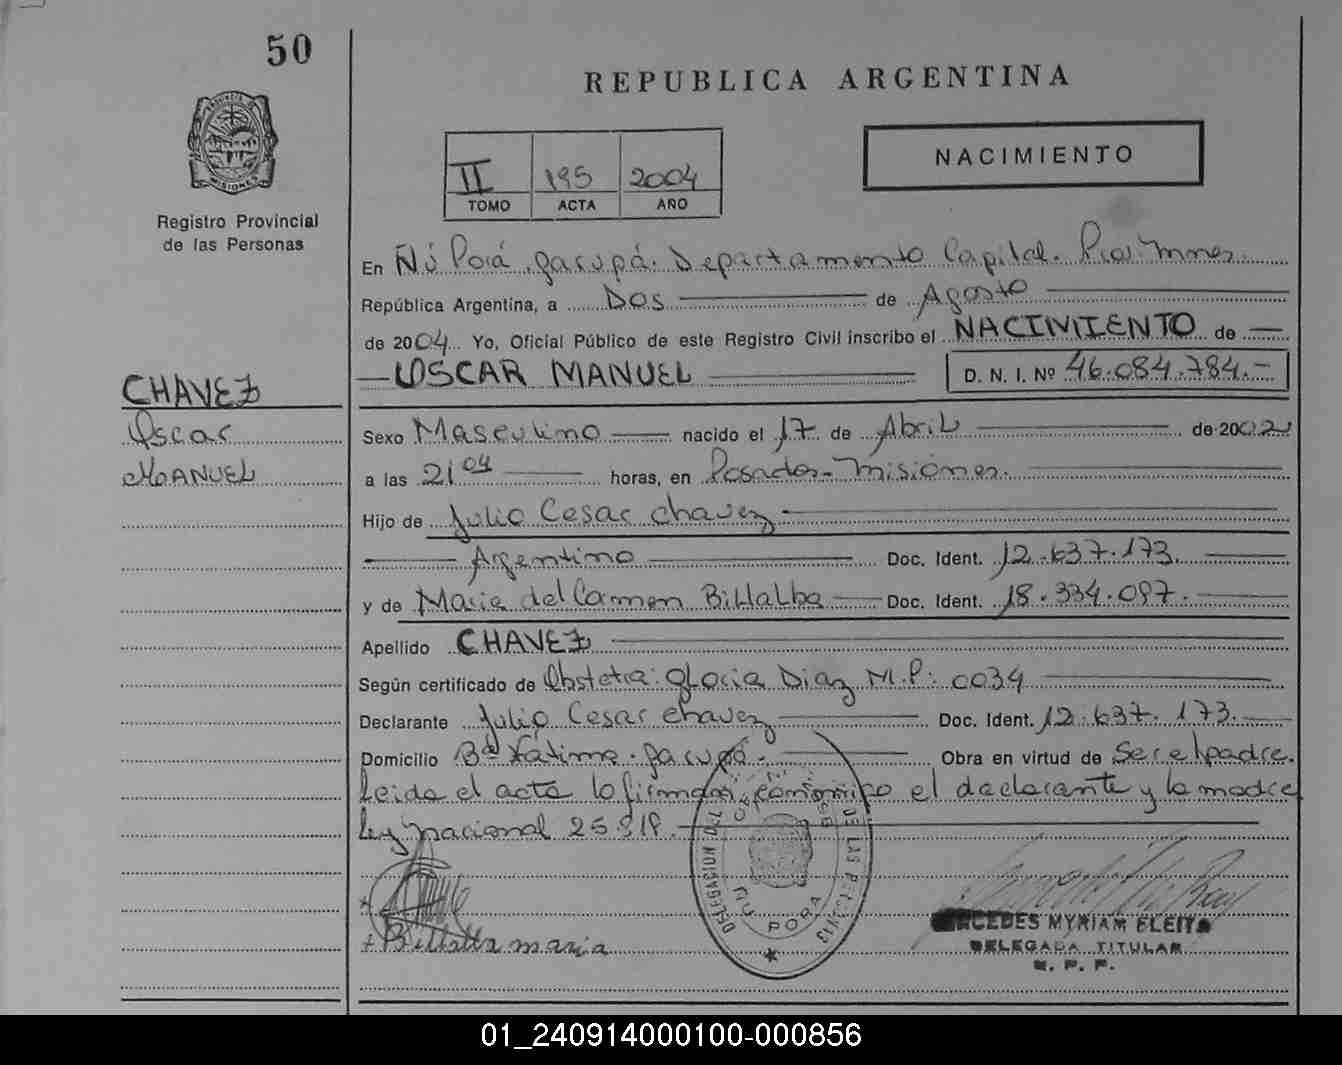 50
REPUBLICA ARGENTINA
MISIONES
Registro Provincial
de las Personas
II 195 2004
TOMO ACTA AÑO
NACIMIENTO
En Ñú Porá. Garupá. Departamento Capital.
República Argentina, a Dos de Agosto
de 2004 Yo, Oficial Público de este Registro Civil inscribo el NACIMIENTO de
OSCAR MANUEL D. N. I. Nº 46.084.784.-
CHAVEZ
Oscar
MANUEL
Sexo Masculino nacido el 17 de Abril de 2002
a las 21 04 horas, en Posadas - Misiones.
Hijo de Julio Cesar Chavez
Argentino Doc. Ident. 12.637.173.
y de Maria del Carmen Billalba Doc. Ident. 18.334.097.
Apellido CHAVEZ
Según certificado de Obstetra: Gloria Diaz M.P: 0034
Declarante Julio Cesar Chavez Doc. Ident. 12.637.173.
Domicilio Bº Fatima. Garupá. Obra en virtud de Ser el padre.
Leida el acta la firman conmigo el declarante y la madre
Ley Nacional 25.819.
DELEGACION DE LAS PERSONAS
ÑU PORA
Billalba maria
MERCEDES MYRIAM ELEITA
DELEGADA TITULAR
R. P. P.
01_240914000100-000856